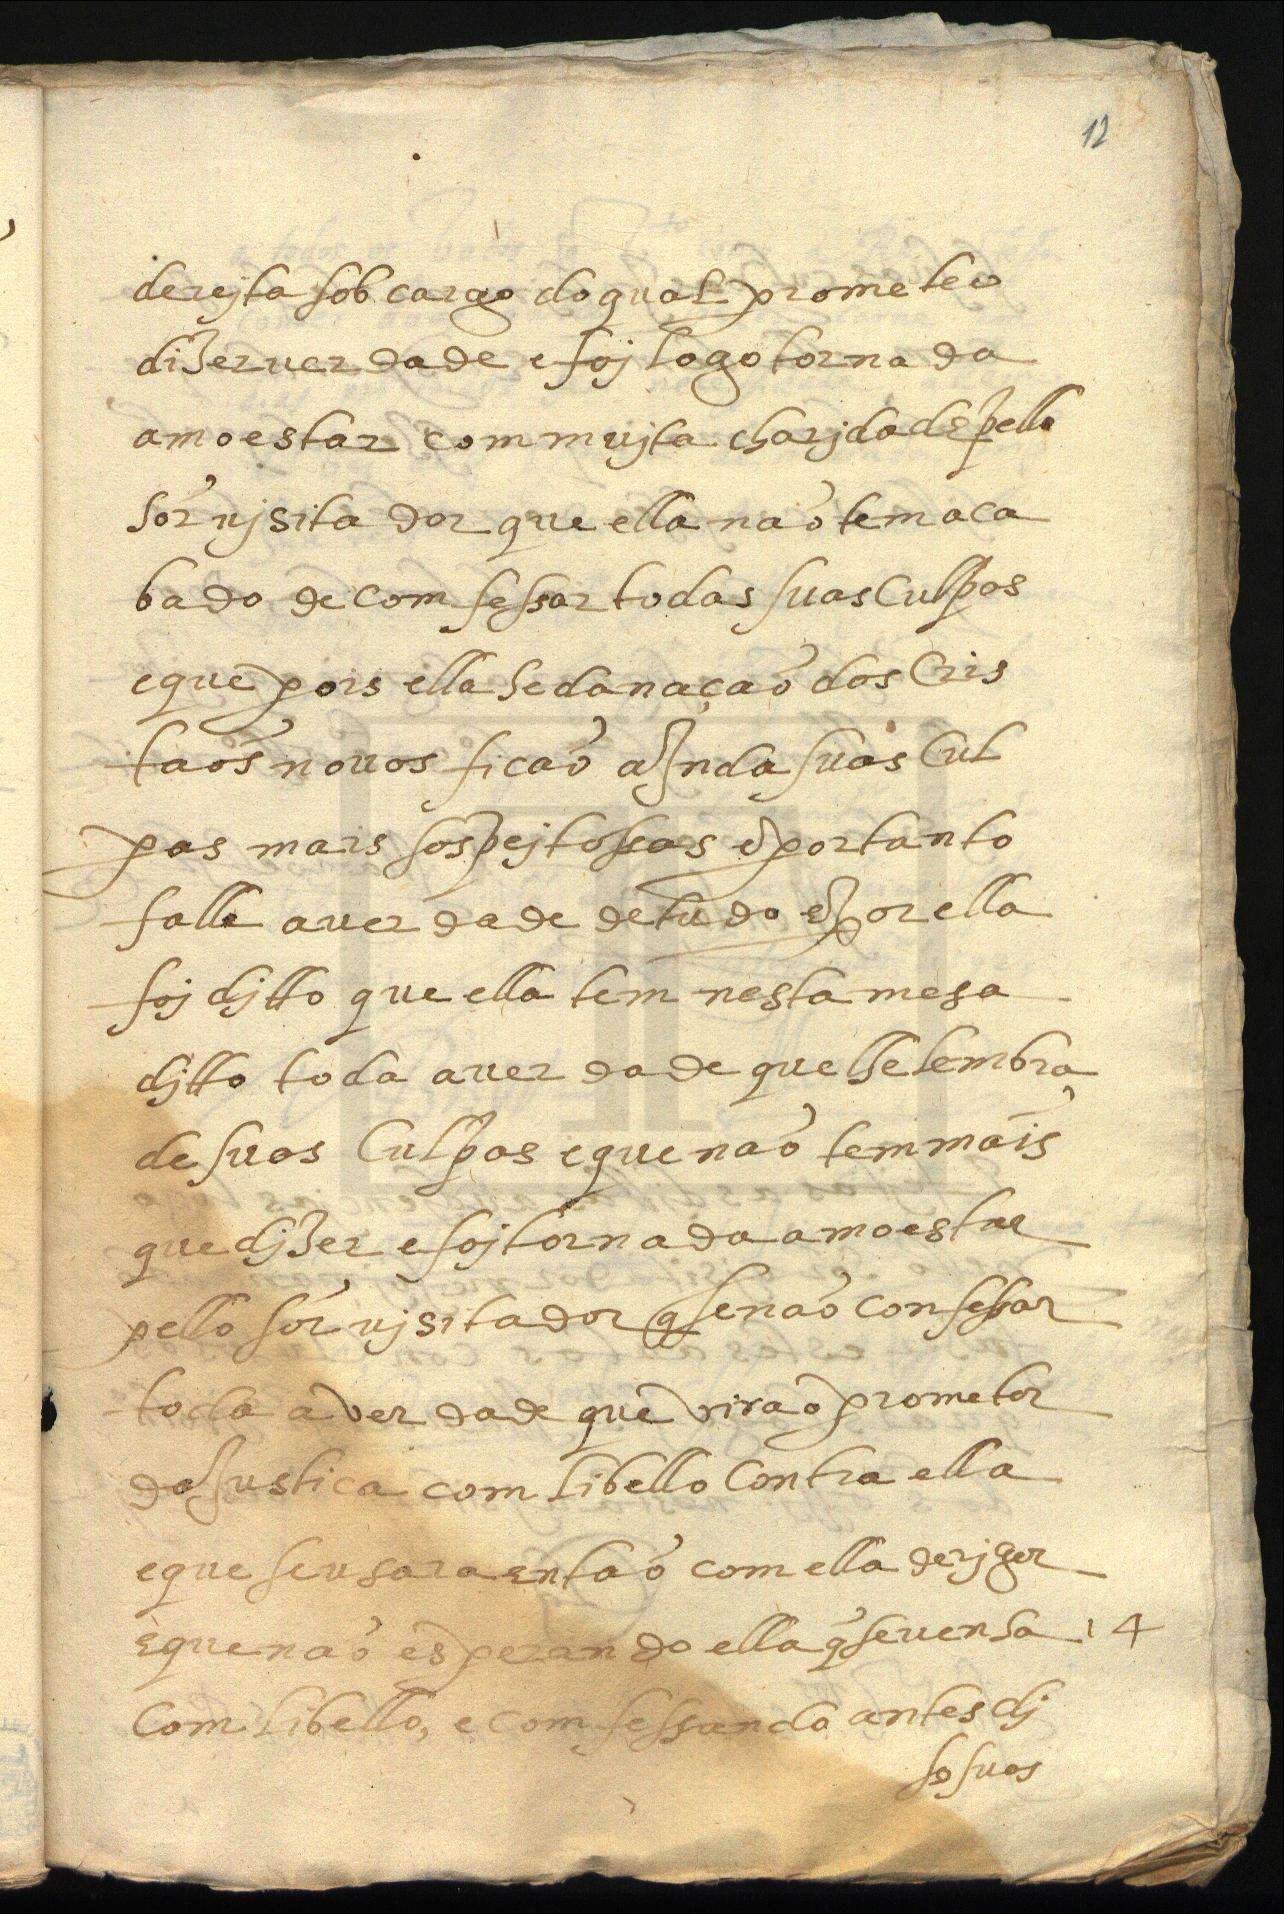 12
derejta sob cargo do qual prometeo
dizer verdade e foj logo tornada
amoestar com mujta charjdade pello
sor vjsitador que ella naõ tem aca
bado de comfessar todas suas Culpas
e que pois ella he da naçaõ dos Cris
taõs novos ficaõ ajnda suas Cul
pas mais sospejtossas e portanto
falle a verdade de tudo e por ella
foj djtto que ella tem nesta mesa
djtto toda a verdade que lhe lembra
de suas Culpas e que naõ tem mais
que djzer e foj tornada amoestar
pello sor vjsitador q̃ se naõ confessar
toda a verdade que vira o prometor
da Justica com libello Contra ella
e que se usara entaõ com ella de rjgor
e que naõ esperando ella q̃ se venha 14
Com libello, e comfessando antes dj
so suas